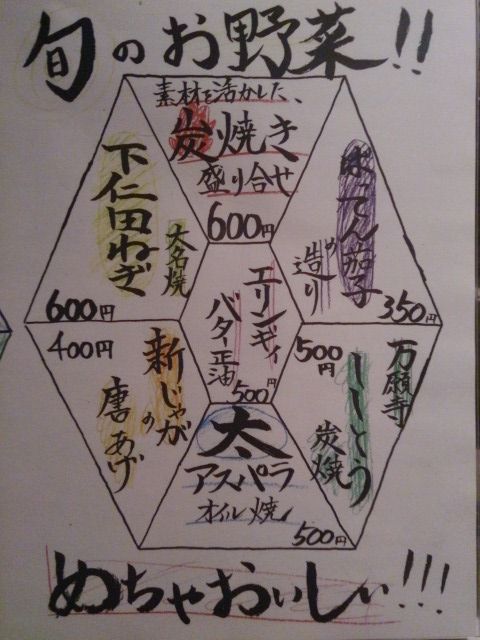 旬のお野菜!!
素材を活かした、
炭焼き
盛り合せ
600円
下仁田ねぎ
大名焼
600円
ばってん茄子
の
造り
350円
エリンギィ
バター正油
500円
400円
新じゃが
の
唐あげ
500円
万願寺
ししとう
炭焼
太
アスパラ
オイル焼
500円
めちゃおいしい!!!